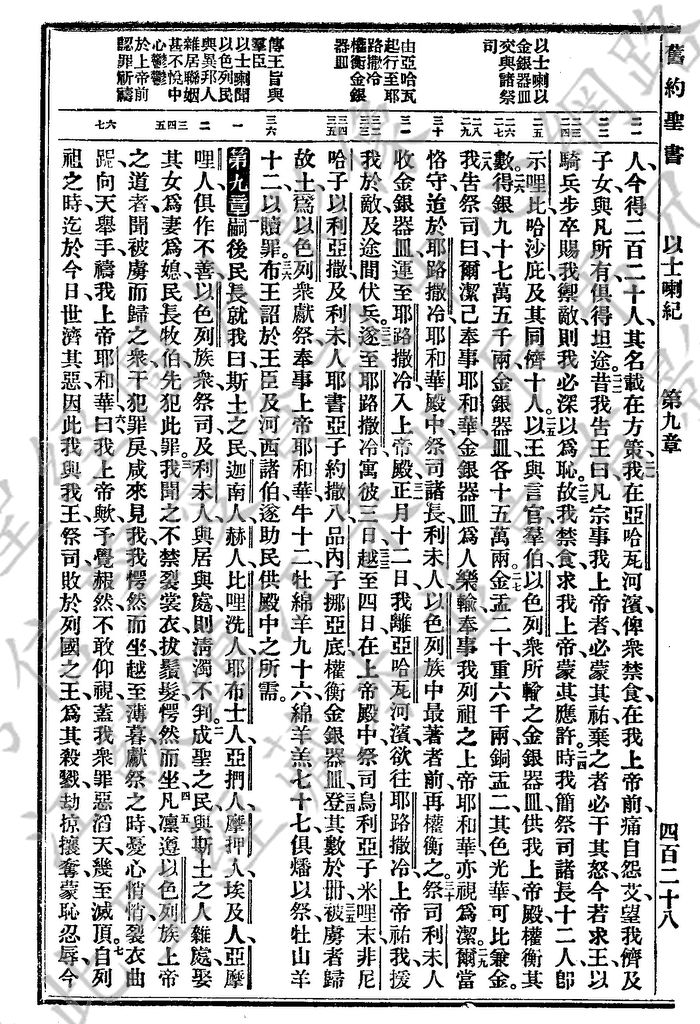 舊約聖書 以士喇紀 第九章 四百二十八
以士喇以
金銀器皿
交與諸祭
司
由亞哈瓦
起行至耶
路撒冷
權衡金銀
器皿
傳王旨與
羣臣
以士喇聞
以色列民
與異邦人
雜居聯姻
甚不悅中
心鬱鬱
於上帝前
認罪祈禱
人今得二百二十人其名載在方策我在亞哈瓦河濱俾衆禁食在我上帝前痛自怨艾望我儕及
子女與凡所有俱得坦途昔我告王曰凡宗事我上帝者必蒙其祐棄之者必干其怒今若求王以
騎兵步卒賜我禦敵則我必深以爲恥故我禁食求我上帝蒙其應許時我簡祭司諸長十二人卽
示哩比哈沙庇及其同儕十人以王與言官羣伯以色列衆所輸之金銀器皿供我上帝殿權衡其
數得銀九十七萬五千兩金銀器皿各十五萬兩金盂二十重六千兩銅盂二其色光華可比兼金
我告祭司曰爾潔己奉事耶和華金銀器皿爲人樂輸奉事我列祖之上帝耶和華亦視爲潔爾當
恪守迨於耶路撒冷耶和華殿中祭司諸長利未人以色列族中最著者前再權衡之祭司利未人
收金銀器皿運至耶路撒冷入上帝殿正月十二日我離亞哈瓦河濱欲往耶路撒冷上帝祐我援
我於敵及途間伏兵遂至耶路撒冷寓彼三日越至四日在上帝殿中祭司烏利亞子米哩末非尼
哈子以利亞撒及利未人耶書亞子約撒八品內子挪亞底權衡金銀器皿登其數於册被虜者歸
故土爲以色列衆獻祭奉事上帝耶和華牛十二牡綿羊九十六綿羊羔七十七俱燔以祭牡山羊
十二以贖罪布王詔於王臣及河西諸伯遂助民供殿中之所需
第九章嗣後民長就我曰斯土之民迦南人赫人比哩洗人耶布士人亞捫人摩押人埃及人亞摩
哩人俱作不善以色列族衆祭司及利未人與居與處則淸濁不判成聖之民與斯土之人雜處娶
其女爲妻爲媳民長牧伯先犯此罪我聞之不禁裂裳衣拔鬚髮愕然而坐凡凛遵以色列族上帝
之道者聞被虜而歸之衆干犯罪戾咸來見我我愕然而坐越至薄暮獻祭之時憂心悄悄裂衣曲
跽向天舉手禱我上帝耶和華曰我上帝歟予覺赧然不敢仰視蓋我衆罪惡滔天幾至滅頂自列
祖之時迄於今日世濟其惡因此我與我王祭司敗於列國之王爲其殺戮劫掠攘奪蒙恥忍辱今